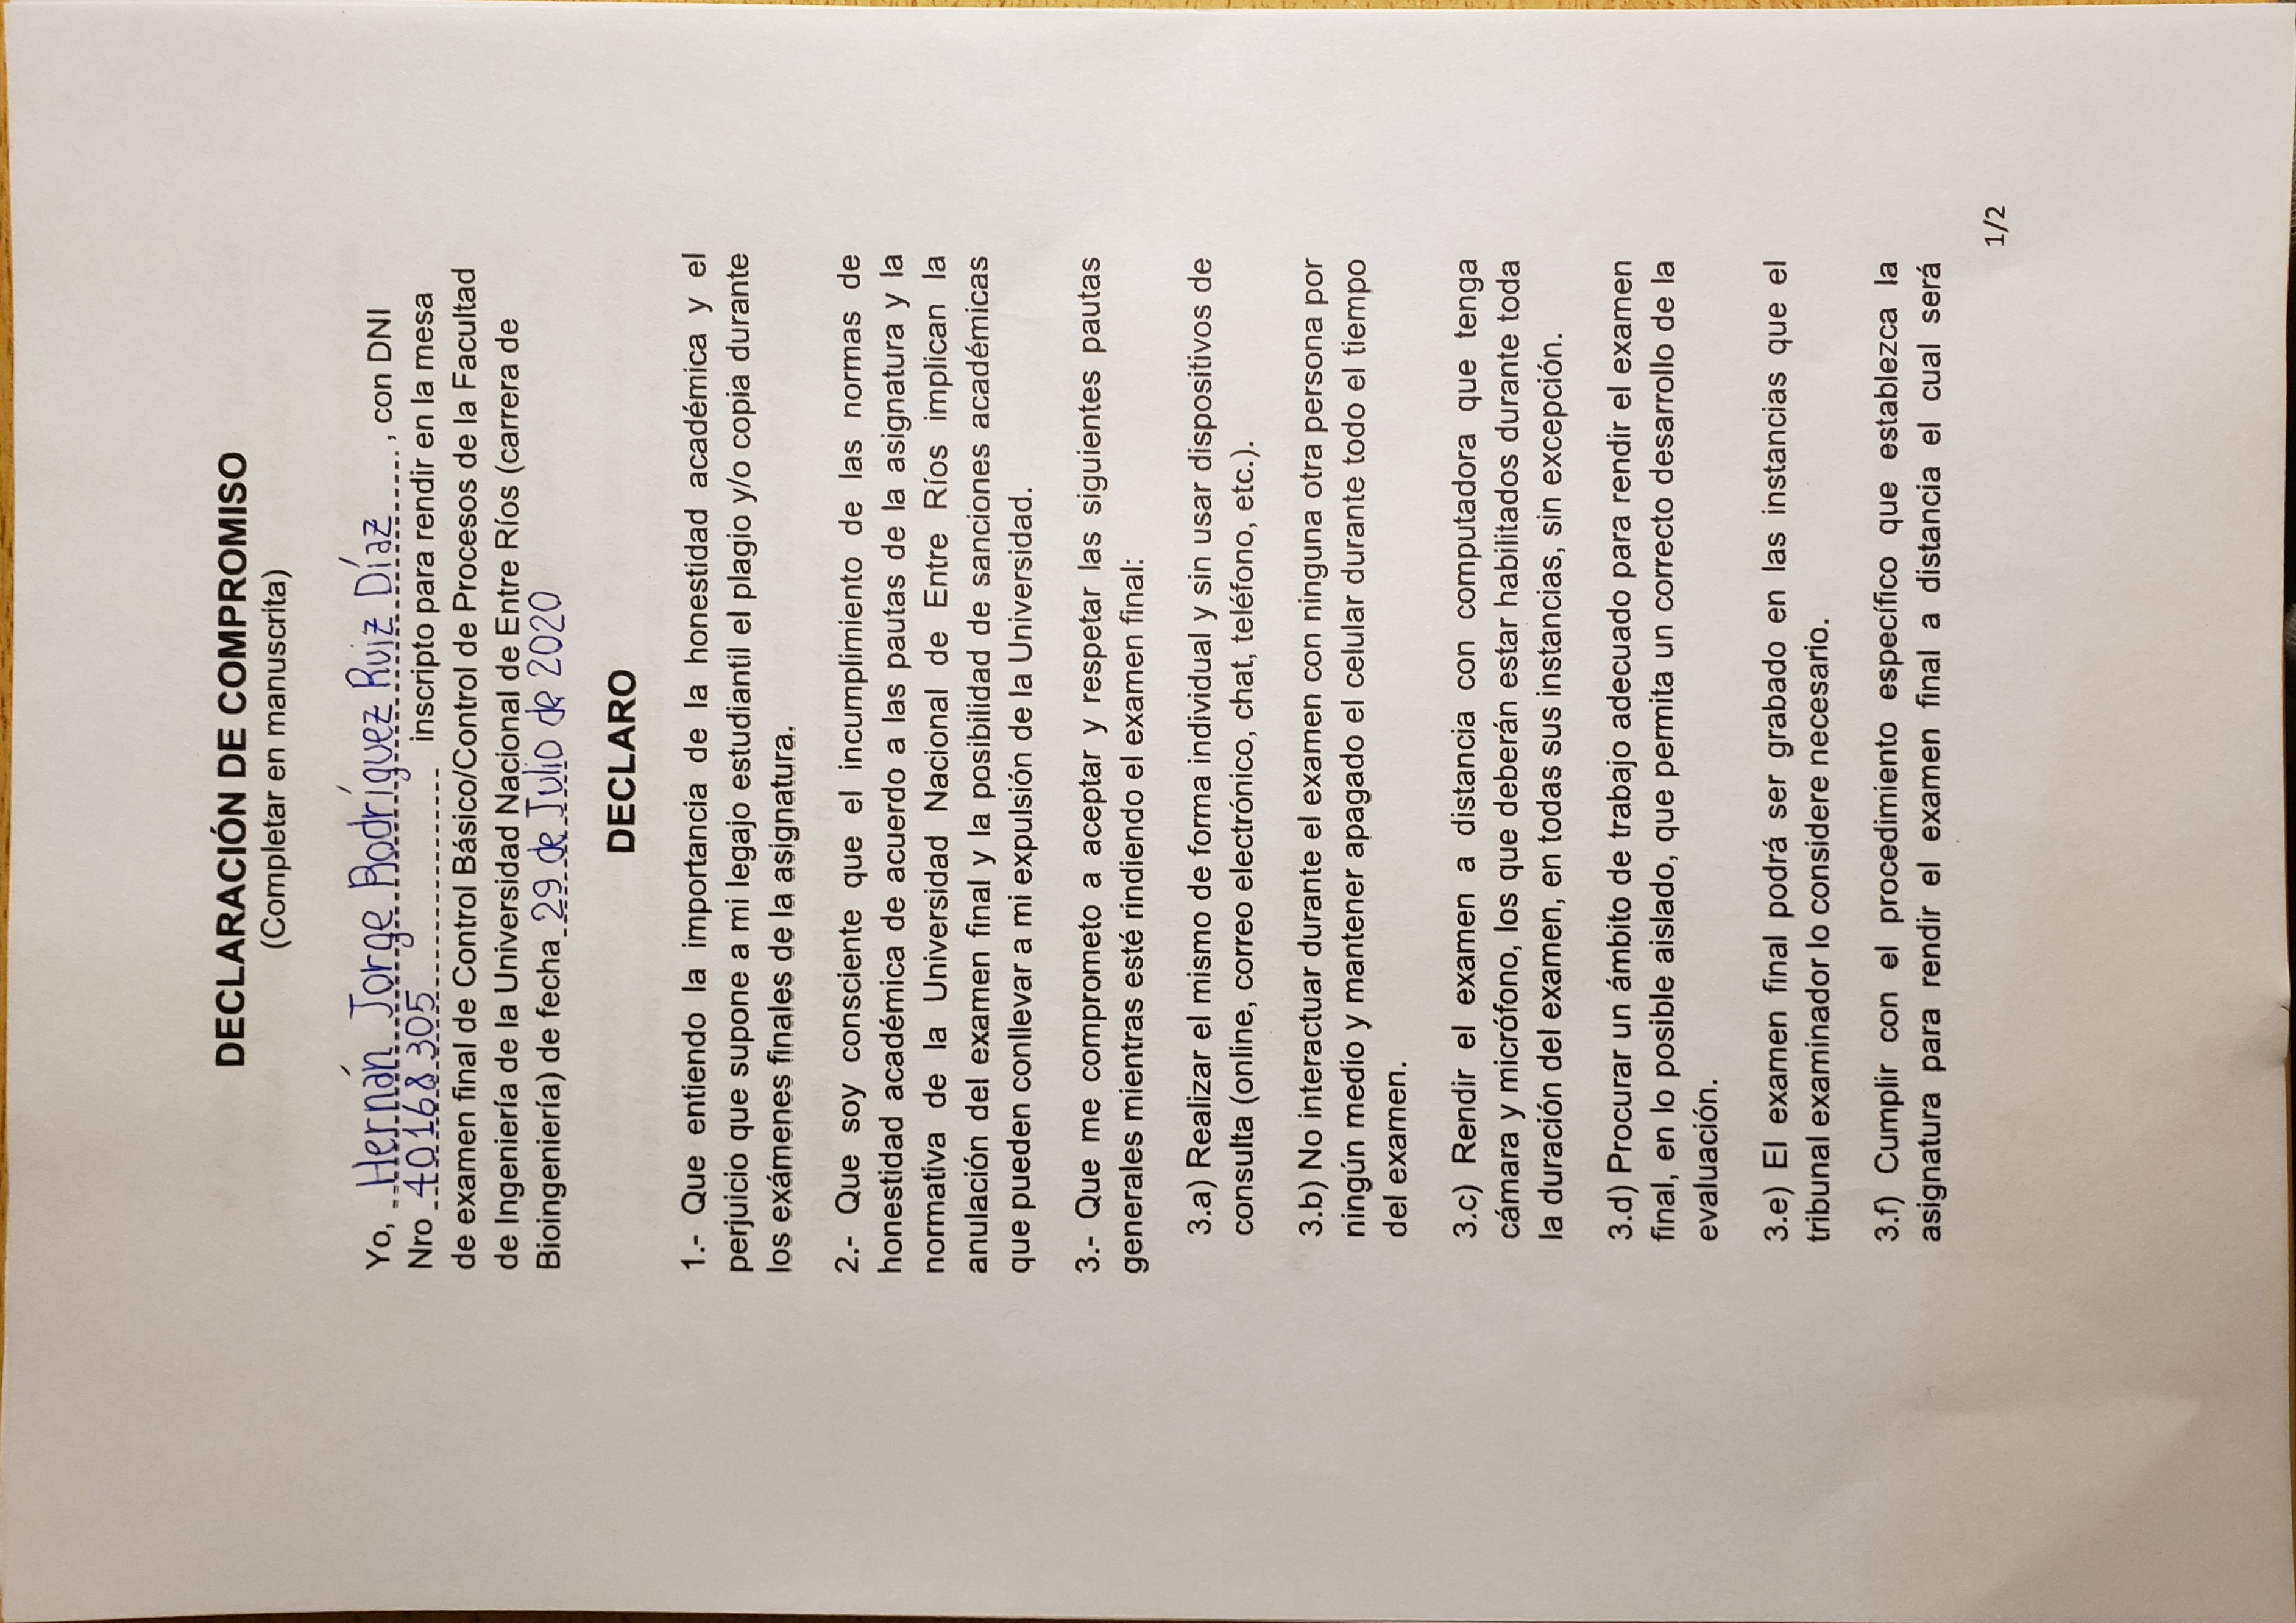 DECLARACIÓN DE COMPROMISO
(Completar en manuscrita)
Yo, Hernán Jorge Rodríguez Ruiz Díaz, con DNI
Nro 40168305 inscripto para rendir en la mesa
de examen final de Control Básico/Control de Procesos de la Facultad
de Ingeniería de la Universidad Nacional de Entre Ríos (carrera de
Bioingeniería) de fecha 29 de Julio de 2020
DECLARO
1.- Que entiendo la importancia de la honestidad académica y el
perjuicio que supone a mi legajo estudiantil el plagio y/o copia durante
los exámenes finales de la asignatura.
2.- Que soy consciente que el incumplimiento de las normas de
honestidad académica de acuerdo a las pautas de la asignatura y la
normativa de la Universidad Nacional de Entre Ríos implican la
anulación del examen final y la posibilidad de sanciones académicas
que pueden conllevar a mi expulsión de la Universidad.
3.- Que me comprometo a aceptar y respetar las siguientes pautas
generales mientras esté rindiendo el examen final:
3.a) Realizar el mismo de forma individual y sin usar dispositivos de
consulta (online, correo electrónico, chat, teléfono, etc.).
3.b) No interactuar durante el examen con ninguna otra persona por
ningún medio y mantener apagado el celular durante todo el tiempo
del examen.
3.c) Rendir el examen a distancia con computadora que tenga
cámara y micrófono, los que deberán estar habilitados durante toda
la duración del examen, en todas sus instancias, sin excepción.
3.d) Procurar un ámbito de trabajo adecuado para rendir el examen
final, en lo posible aislado, que permita un correcto desarrollo de la
evaluación.
3.e) El examen final podrá ser grabado en las instancias que el
tribunal examinador lo considere necesario.
3.f) Cumplir con el procedimiento específico que establezca la
asignatura para rendir el examen final a distancia el cual será
1/2